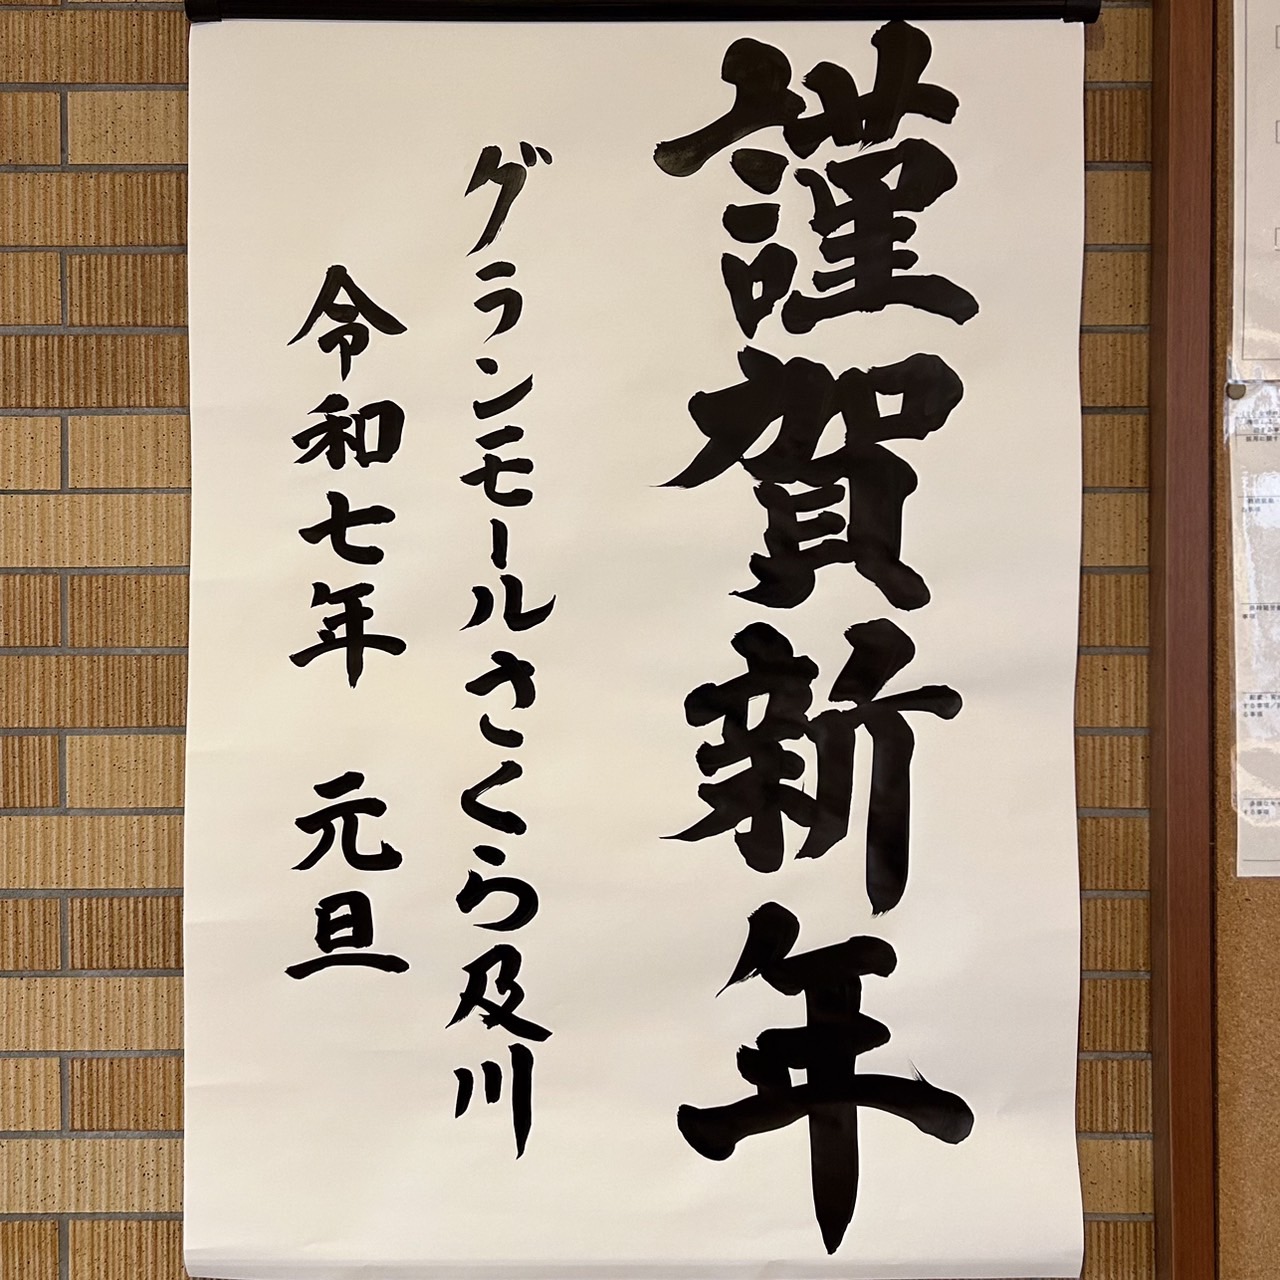 謹賀新年
グランモールさくら及川
令和七年　元旦